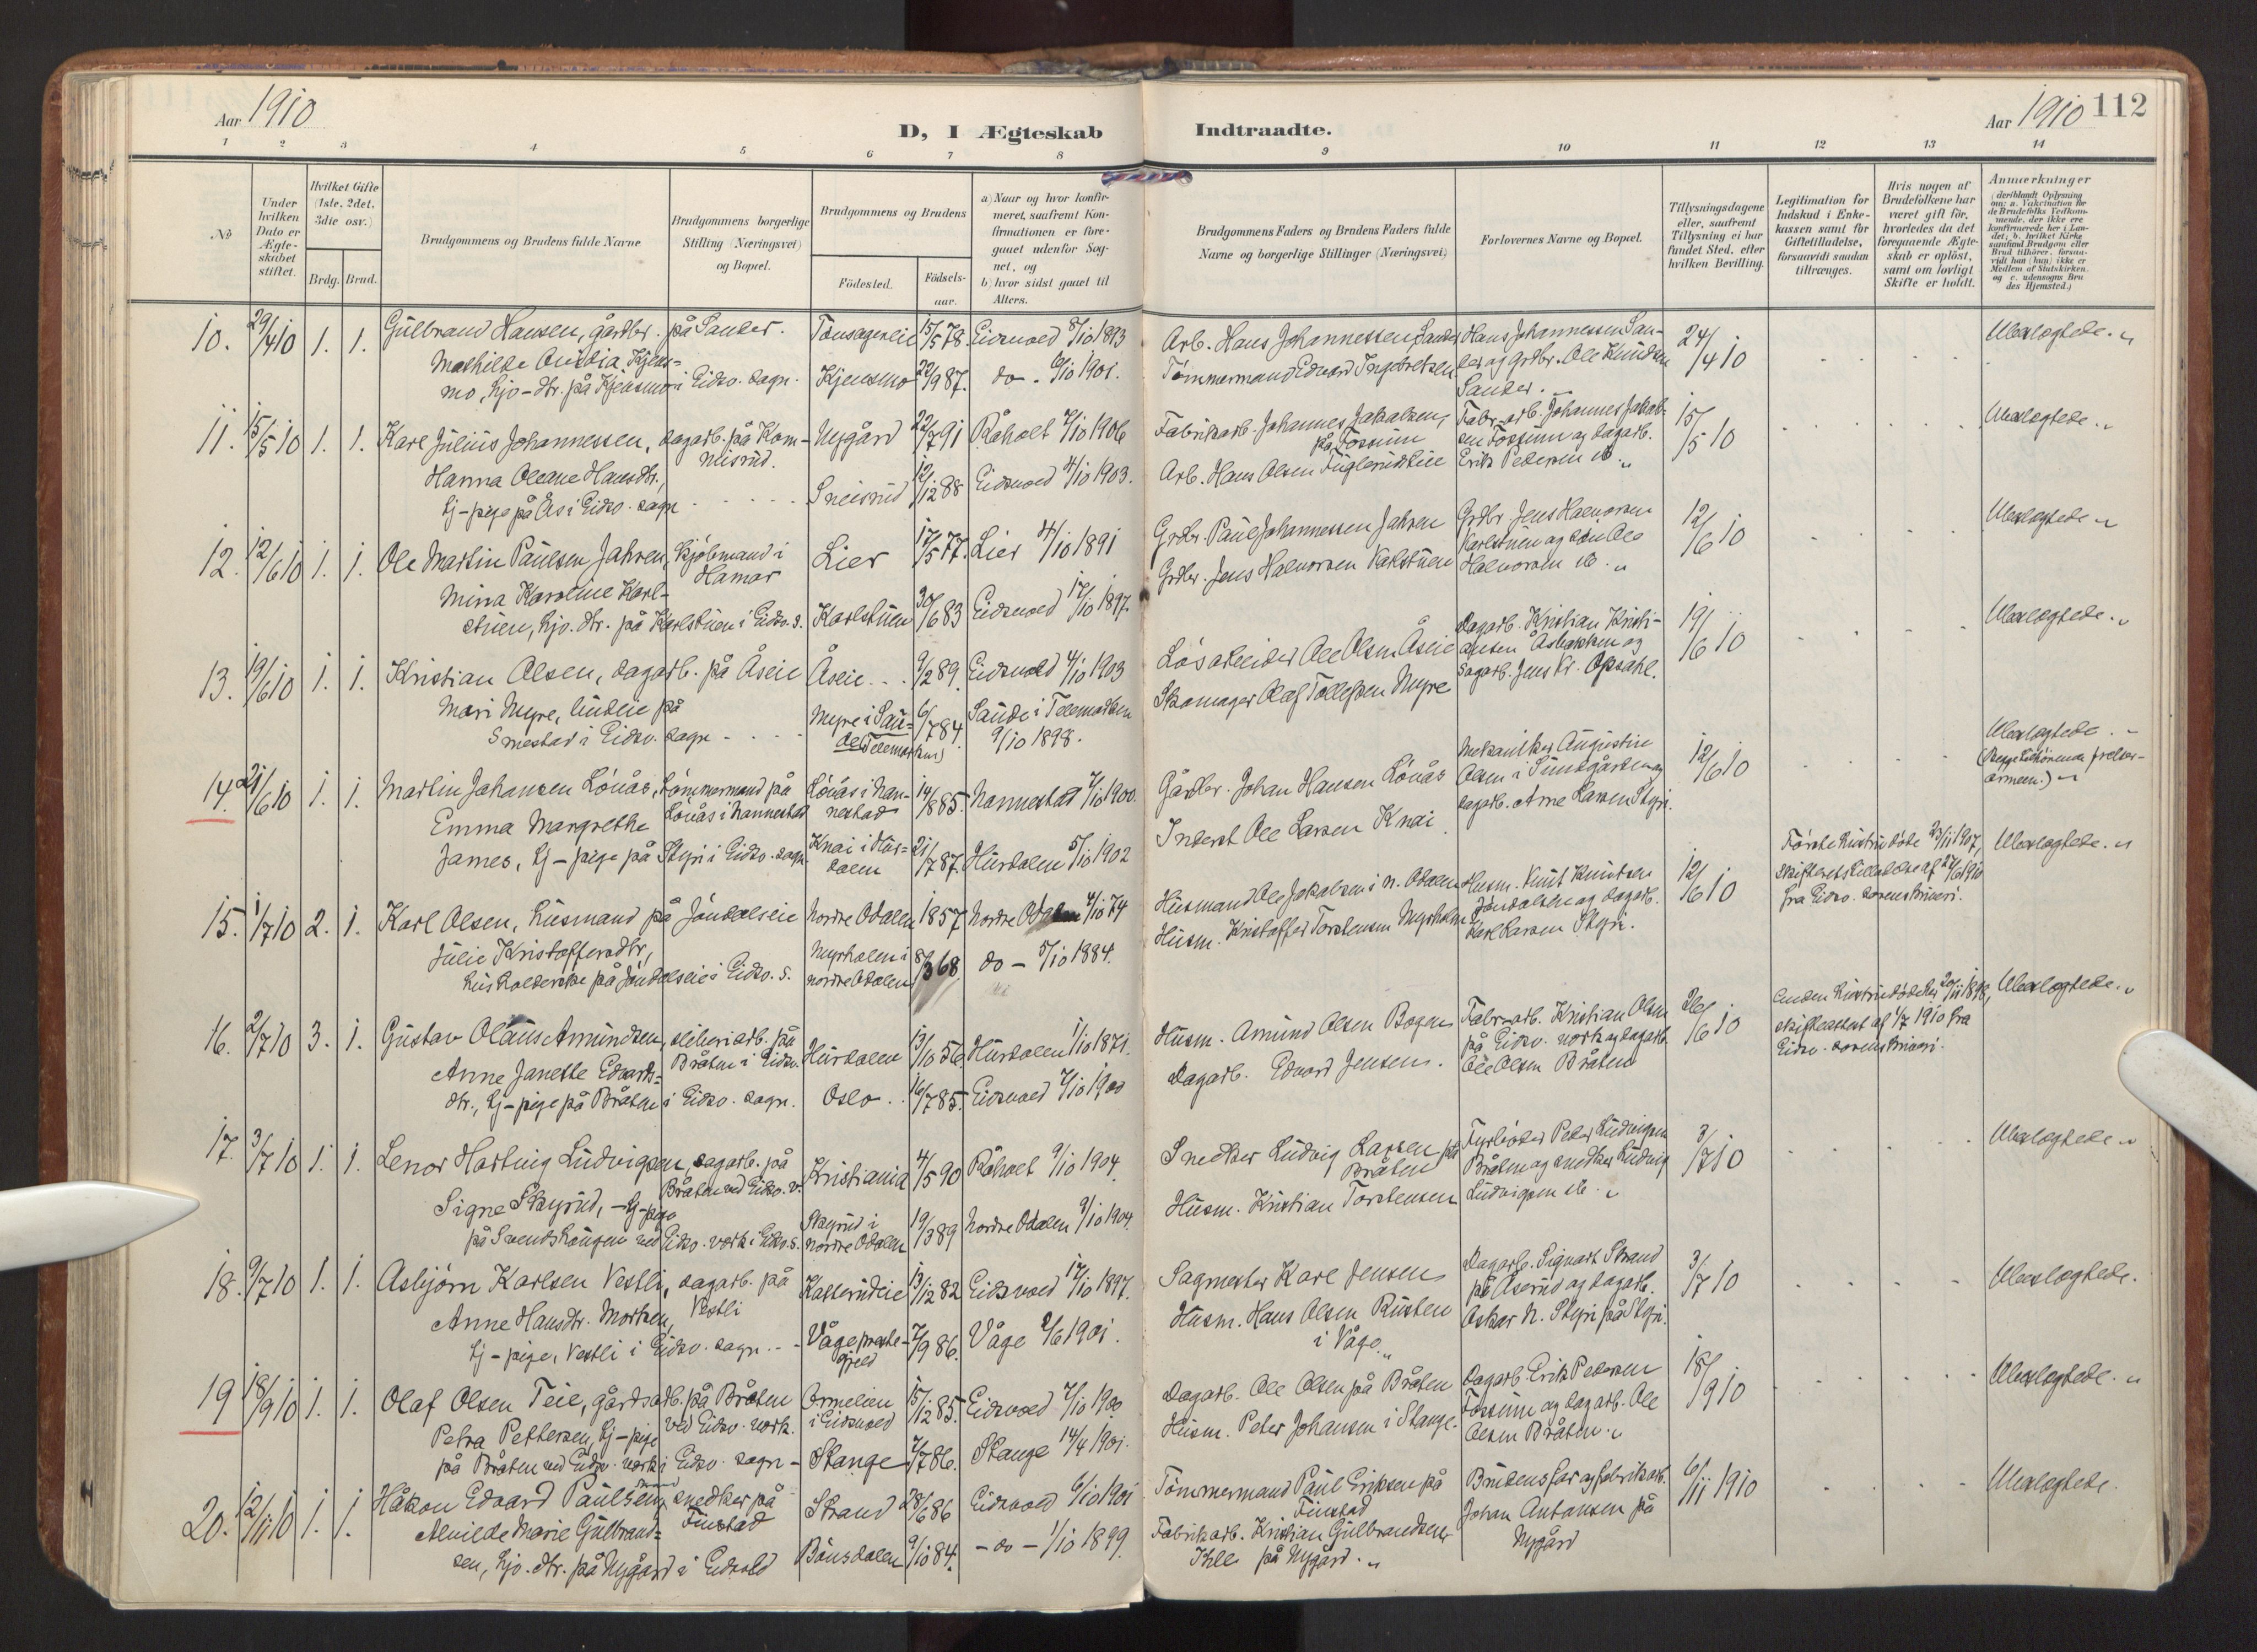 Aar 1910
D, I Ægteskab Indtraadte.
Aar 1910 112
1 2 3 4 5 6 7 8 9 10 11 12 13 14
No
Under hvilken Dato er Ægteskabet stiftet.
Hvilket Gifte (1ste, 2det, 3die osv.)
Brdg. Brud.
Brudgommens og Brudens fulde Navne
Brudgommens borgerlige Stilling (Næringsvei) og Bopæl.
Brudgommens og Brudens
Fødested. Fødselsaar.
a) Naar og hvor konfirmeret, saafremt Konfirmationen er foregaaet udenfor Sognet, og
b) hvor sidst gaaet til Alters.
Brudgommens Faders og Brudens Faders fulde Navne og borgerlige Stillinger (Næringsvei)
Forlovernes Navne og Bopæl.
Tillysningsdagene eller, saafremt Tillysning ei har fundet Sted, efter hvilken Bevilling.
Legitimation for Indskud i Enkekassen samt for Giftetilladelse, forsaavidt saadan tiltrænges.
Hvis nogen af Brudefolkene har været gift før, hvorledes da det foregaaende Ægteskab er opløst, samt om lovligt Skifte er holdt.
Anmærkninger
(deriblandt Oplysning om: a. Vaksination for de Brudefolks Vedkommende, der ikke ere konfirmerede her i Landet; b. hvilket Kirkesamfund Brudgom eller Brud tilhører, forsaavidt han (hun) ikke er Medlem af Statskirken, og c. udensogns Brudes Hjemsted.)
10. 29/4 10 1. 1. Gulbrand Hansen, gårdbr. på Sander. Tønsagereie 15/5 78. Eidsvold 8/10 1893 Arb. Hans Johannessen Sander Hans Johannessen San- 24/4 10 Ubeslægtede.
Mathilde Kjens- der og grdbr. Ole Knudsen
mo, hjv-dtr. på Kjensmo i Eidsv. sogn. Kjensmo 22/9 87. do - 6/10 1901. Tømmermand Edvard Ingebretsen Sander.
11. 15/5 10 1. 1. Karl Julius Johannessen, dagarb. på Kom- Nygård 22/7 91 Råholt 7/10 1906 Fabrikarb. Johannes Jakobsen, Fabr-arb. Johannes Jakob- 15/5 10 Ubeslægtede.
nisrud. på Fossum sen Fossum og dagarb.
Hanna Oleane Hansdtr., Sneisrud 12/12 88 Eidsvold 4/10 1903. Arb. Hans Olsen Fuglerudeie Erik Pedersen ib.
tj-pige på Ås i Eidsv. sogn
12. 12/6 10 1. 1. Ole Martin Paulsen Jahren, kjøbmand i Hamar Lier 17/5 77. Lier 4/10 1891 Grdbr. Paul Johannessen Jahren Grdbr. Jens Halvorsen 12/6 10 Ubeslægtede
Mina Karoline Karl- Grdbr. Jens Halvorsen Karlstuen Karlstuen og søn Ole
stuen, hjv. dtr. på Karlstuen i Eidsv. s. Karlstuen 30/6 83 Eidsvold 17/10 1897. Halvorsen ib.
13. 19/6 10 1. 1. Kristian Olsen, dagarb. på Åseie Åseie 9/2 89. Eidsvold 4/10 1903 Løsarbeider Ole Olsen Åseie Dagarb. Kristian Kristi- 19/6 10 Ubeslægtede.
ansen Åsbakken og
Mari Myre, budeie på Myre i Sau- 6/7 84. Saude i Telemarken Skomager Olaf Tollefsen Myre dagarb. Jens Kr. Opsahl.
Smestad i Eidsv. sogn de (Telemarken) 9/10 1898.
14. 21/6 10 1. 1. Martin Johansen Lönås, tømmermand på Lönås i Nannestad Lönås i Nannestad 14/8 85. Nannestad 7/10 1900. Gårdbr. Johan Hansen Lönås Mekaniker Augustin 12/6 10 Ubeslægtede.
Olsen i Sundgården og (Begge tilhørende frelses-
Emma Margrethe Inderst Ole Larsen Knai dagarb. Arne Larsen Styri. armeen.)
James, tj-pige på Styri i Eidsv. sogn. Knai i Hurdalen 21/7 87. Hurdalen 5/10 1902
15. 1/7 10 2. 1. Karl Olsen, husmand på Jöndalseie Nordre Odalen 1857. Nordre Odalen 4/10 74 Husmand Ole Jakobsen i N. Odalen Husm. Knut Knutsen 12/6 10 Første hustru døde 23/11 1907, Ubeslægtede.
Jöndalseie og dagarb. skifterets tilladelse af 27/6 1910
Julie Kristoffersdtr, Myrholen i Husm. Kristoffer Torstensen Myrholen Karl Larsen Styri. fra Eidsv. sorenskriveri.
husholderske på Jöndalseie i Eidsv. s. nordre Odalen 8/3 68 do - 5/10 1884.
16. 2/7 10 3. 1. Gustav Olaus Amundsen, sliberiarb. på Bråten i Eidsv. Hurdalen 13/10 56. Hurdalen 1/10 1871. Husm. Amund Olsen Bogen Fabr-arb. Kristian Olsen 26/6 10 Anden hustru døde 20/11 1898, Ubeslægtede.
på Eidsv. værk og dagarb. skifteattest af 1/7 1910 fra
Anne Janette Edvards- Dagarb. Edvard Jensen. Ole Olsen Bråten Eidsv. sorenskriveri.
dtr., tj-pige på Bråten i Eidsv. sogn. Oslo 16/7 85. Eidsvold 7/10 1900
17. 3/7 10 1. 1. Lenor Hartvig Ludvigsen, dagarb. på Bråten ved Eidsv. v. Kristiania 4/5 90 Råholt 9/10 1904. Snedker Ludvig Larsen på Bråten Fyrbøter Peder Ludvigsen 3/7 10 Ubeslægtede
Bråten og snedker Ludvig
Signe Skyrud, tj-pige Skyrud i Husm. Kristian Torstensen Ludvigsen ib.
på Svendshaugen ved Eidsv. værk i Eidsv. s. nordre Odalen 19/3 89 Nordre Odalen 9/10 1904.
18. 9/7 10 1. 1. Asbjørn Karlsen Vestli, dagarb. på Vestli Kasterudeie 13/12 82 Eidsvold 17/10 1897. Sagmester Karl Jensen Dagarb. Sigvart Strand 3/7 10 Ubeslægtede.
på Åsrud og dagarb.
Anne Hansdtr. Morken, Våge præste- Husm. Hans Olsen Rusten Oskar N. Styri på Styri.
tj-pige, Vestli i Eidsv. sogn gjeld 7/9 86. Våge 2/6 1901. i Våge
19 18/9 10 1. 1. Olaf Olsen Teie, gårdsarb. på Bråten ved Eidsv. værk. Ormelien i Eidsvold 15/12 85. Eidsvold 7/10 1900 Dagarb. Ole Olsen på Bråten Dagarb. Erik Pedersen 18/9 10 Ubeslægtede.
Fossum og dagarb. Ole
Petra Pettersen, tj-pige Husm. Peter Johansen i Stange. Olsen Bråten.
på Bråten ved Eidsv. værk i Eidsv. sogn - Stange 7/7 86. Stange 14/4 1901.
20. 12/11 10 1. 1. Håkon Edvard Paulsen, snedker på Finstad Strand 28/6 86 Eidsvold 6/10 1901 Tømmermand Paul Eriksen på Finstad Brudens far og fabrikarb. 6/11 1910 Ubeslægtede.
Johan Antonsen på
Alvilde Marie Gulbrand- Fabrikarb. Kristian Gulbrandsen Nygård
sen, hjv. dtr. på Nygård i Eidsvold Bönsdalen 9/10 84. - do - 1/10 1899. Ihle på Nygård.